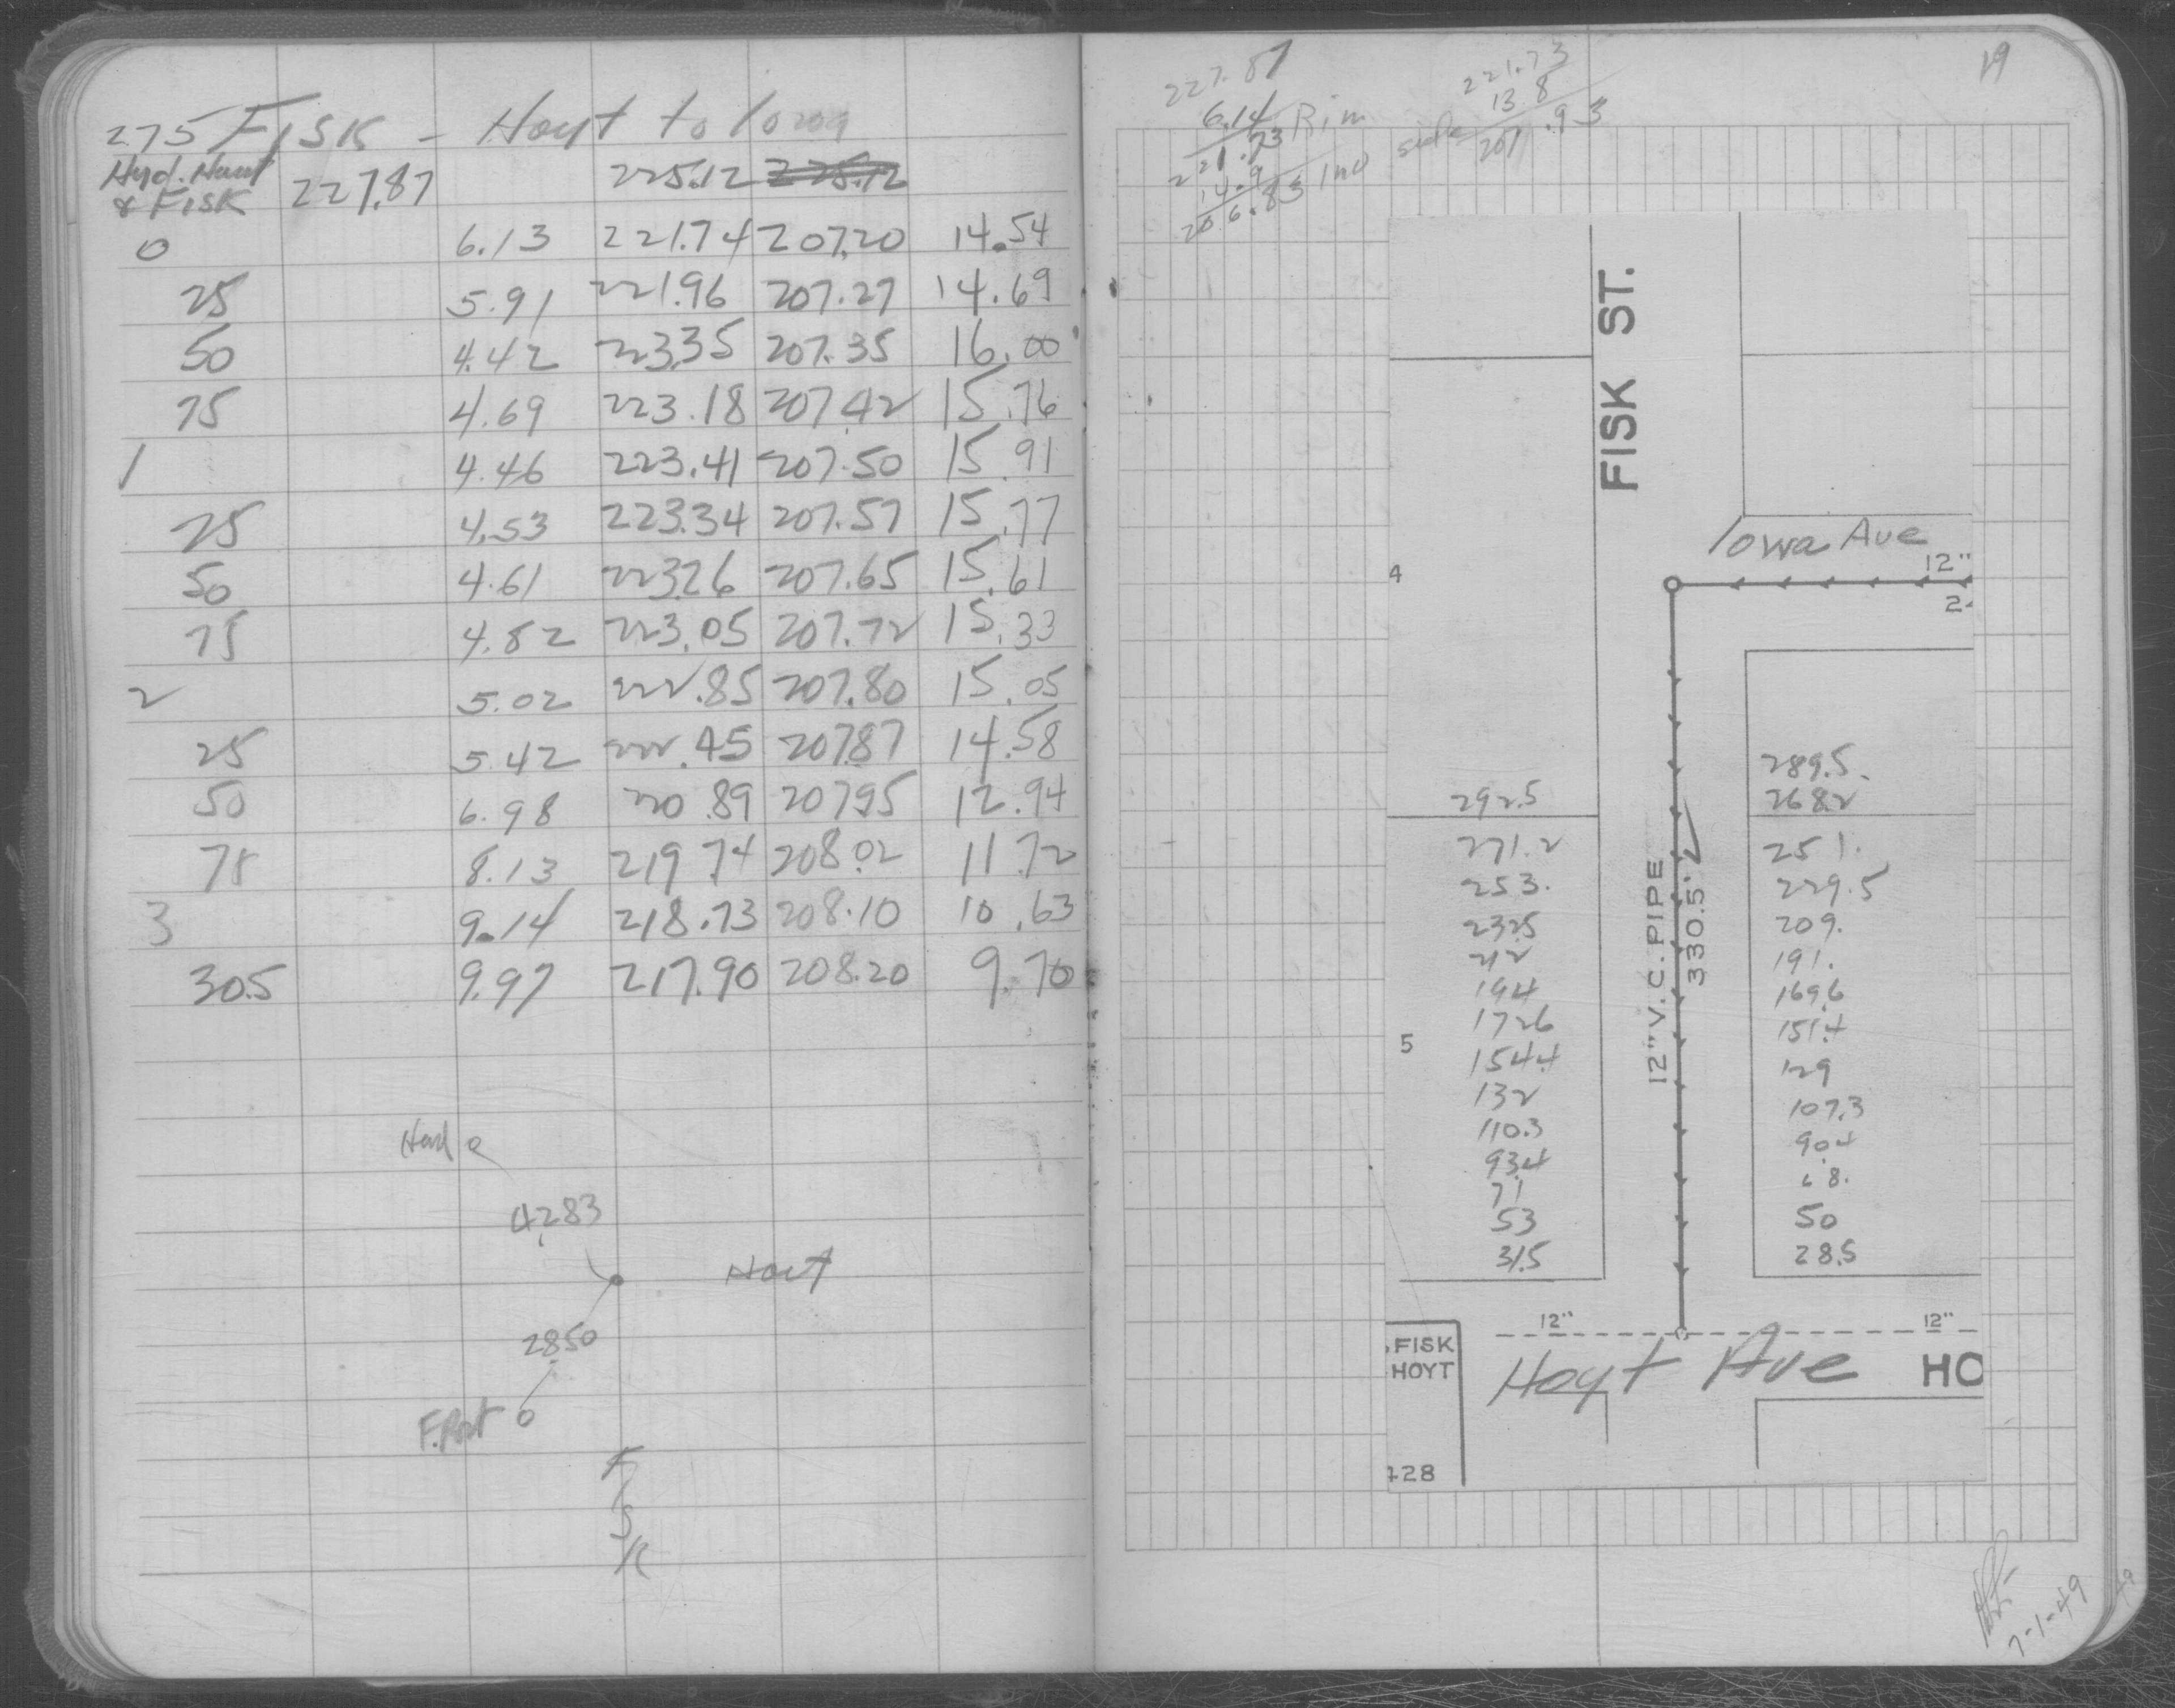 275 FISK - Hoyt to Iowa
Hyd. Hoyt
& FISK 227.87 225.12
0 6.13 221.74 207.20 14.54
25 5.91 221.96 207.27 14.69
50 4.42 223.35 207.35 16.00
75 4.69 223.18 207.42 15.76
1 4.46 223.41 207.50 15.91
25 4.53 223.34 207.57 15.77
50 4.61 223.26 207.65 15.61
75 4.82 223.05 207.72 15.33
2 5.02 222.85 207.80 15.05
25 5.42 222.45 207.87 14.58
50 6.98 220.89 207.95 12.94
75 8.13 219.74 208.02 11.72
3 9.14 218.73 208.10 10.63
30.5 9.97 217.90 208.20 9.70
42.83
Hoyt
28.50
F.
FISK
19
227.87
6.14
221.73 Rim
14.9
206.83 Inv
221.73
13.8
side 207.93
FISK ST.
Iowa Ave
12"
4
12" V.C. PIPE
330.5'
292.5
271.2
253.
232.5
212
194
172.6
154.4
132
110.3
93.4
71
53
31.5
5
289.5.
268.2
251.
229.5
209.
191.
169.6
151.4
129
107.3
90.4
68.
50
28.5
12" 12"
FISK
HOYT
Hoyt Ave HO
428
7-1-49